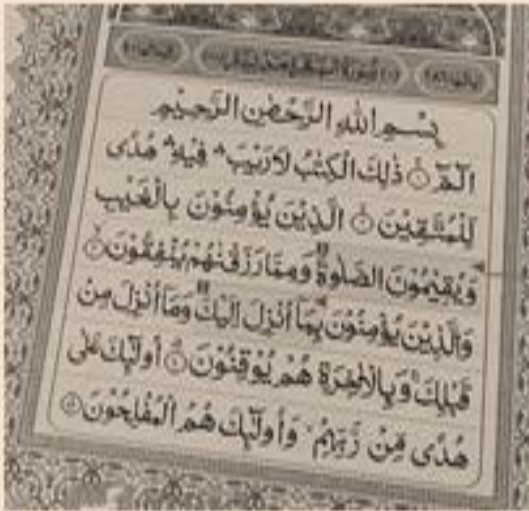 بِسْمِ اللهِ الرَّحْمٰنِ الرَّحِيْمِ
الٓمّٓ ۚ﴿۱﴾ ذٰلِكَ الْكِتٰبُ لَا رَيْبَ ۛ فِيْهِ ۛ هُدًى
لِّلْمُتَّقِيْنَ ﴿۲﴾ الَّذِيْنَ يُؤْمِنُوْنَ بِالْغَيْبِ
وَيُقِيْمُوْنَ الصَّلٰوةَ وَمِمَّا رَزَقْنٰهُمْ يُنْفِقُوْنَ ﴿۳﴾
وَالَّذِيْنَ يُؤْمِنُوْنَ بِمَآ اُنْزِلَ اِلَيْكَ وَمَآ اُنْزِلَ مِنْ
قَبْلِكَ ۚ وَبِالْاٰخِرَةِ هُمْ يُوْقِنُوْنَ ﴿۴﴾ اُولٰٓئِكَ عَلٰى
هُدًى مِّنْ رَّبِّهِمْ ۙ وَاُولٰٓئِكَ هُمُ الْمُفْلِحُوْنَ ﴿۵﴾